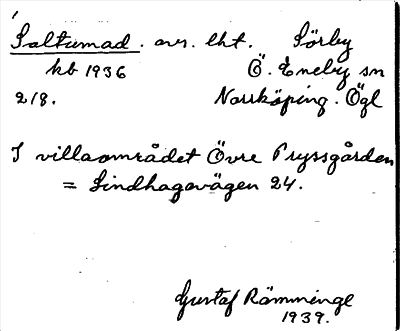 Saltumad. avs. lht. Sörby
kb 1936 Ö. Eneby sn
2/8. Norrköping. Ögl
I villaområdet Övre Pryssgården
= Lindhagavägen 24.
Gustaf Rämminge
1939.